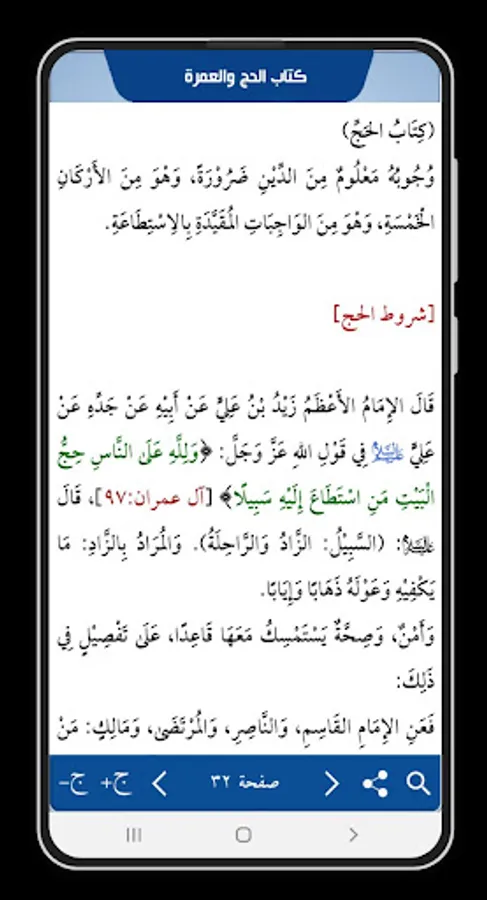 كتاب الحج والعمرة
(كِتَابُ الحَجِّ)
وُجُوبُهُ مَعْلُومٌ مِنَ الدِّيْنِ ضَرُوْرَةً، وَهْوَ مِنَ الأَرْكَانِ
الْخَمْسَةِ، وَهْوَ مِنَ الوَاجِبَاتِ المُقَيَّدَةِ بِالِاسْتِطَاعَةِ.
[شروط الحج]
قَالَ الإِمَامُ الأَعْظَمُ زَيْدُ بْنُ عَلِيٍّ عَنْ أَبِيْهِ عَنْ جَدِّهِ عَنْ
عَلِيٍّ عَلَيْهِ السَّلَامُ فِي قَوْلِ اللهِ عَزَّ وَجَلَّ: ﴿وَلِلَّهِ عَلَى النَّاسِ حِجُّ
الْبَيْتِ مَنِ اسْتَطَاعَ إِلَيْهِ سَبِيلًا﴾ [آل عمران:٩٧]، قَالَ
عَلَيْهِ السَّلَامُ: (السَّبِيْلُ: الزَّادُ وَالرَّاحِلَةُ). وَالْمُرَادُ بِالزَّادِ: مَا
يَكْفِيْهِ وَعَوْلَهُ ذَهَابًا وَإِيَابًا.
وَأَمْنٌ، وَصِحَّةٌ يَسْتَمْسِكُ مَعَهَا قَاعِدًا، عَلَى تَفْصِيْلٍ فِي
ذَلِكَ:
فَعَنِ الإِمَامِ القَاسِمِ، وَالنَّاصِرِ، وَالْمُرْتَضَى، وَمَالِكٍ: مَنْ
صفحة ٣٢ ج+ ج-